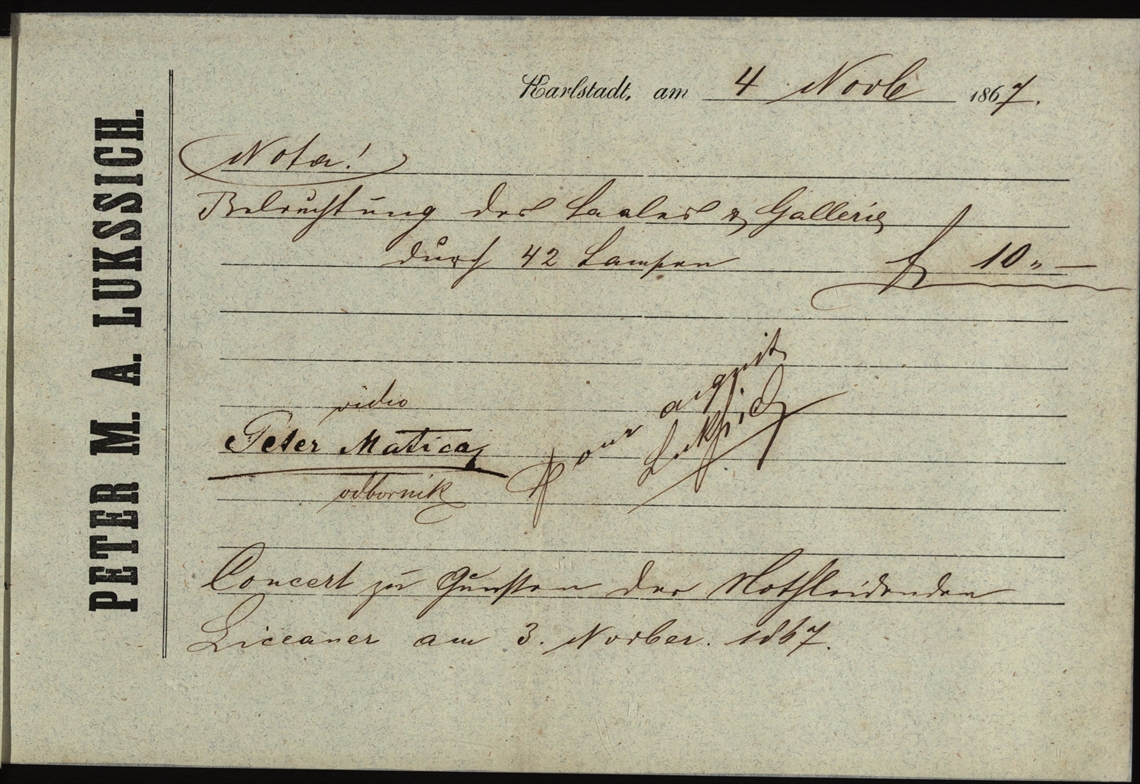 PETER M. A. LUKSSICH.
Karlstadt, am 4 Novb 1867.
Nota!
Beleuchtung des Saales & Gallerie
durch 42 Lampen f 10 „ —
vidio
Peter Matica
odbornik
Pour acquit
Lukšić
Concert zu Gunsten der Nothleidenden
Liccaner am 3. Novber. 1867.